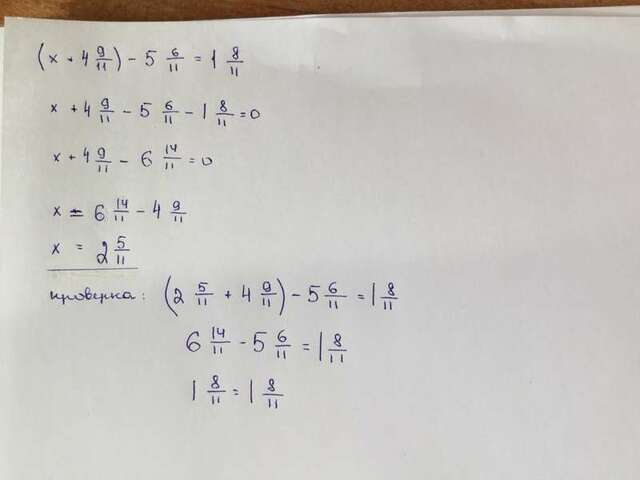 (x + 4 9/11) - 5 6/11 = 1 8/11
x + 4 9/11 - 5 6/11 - 1 8/11 = 0
x + 4 9/11 - 6 14/11 = 0
x = 6 14/11 - 4 9/11
x = 2 5/11
проверка: (2 5/11 + 4 9/11) - 5 6/11 = 1 8/11
6 14/11 - 5 6/11 = 1 8/11
1 8/11 = 1 8/11